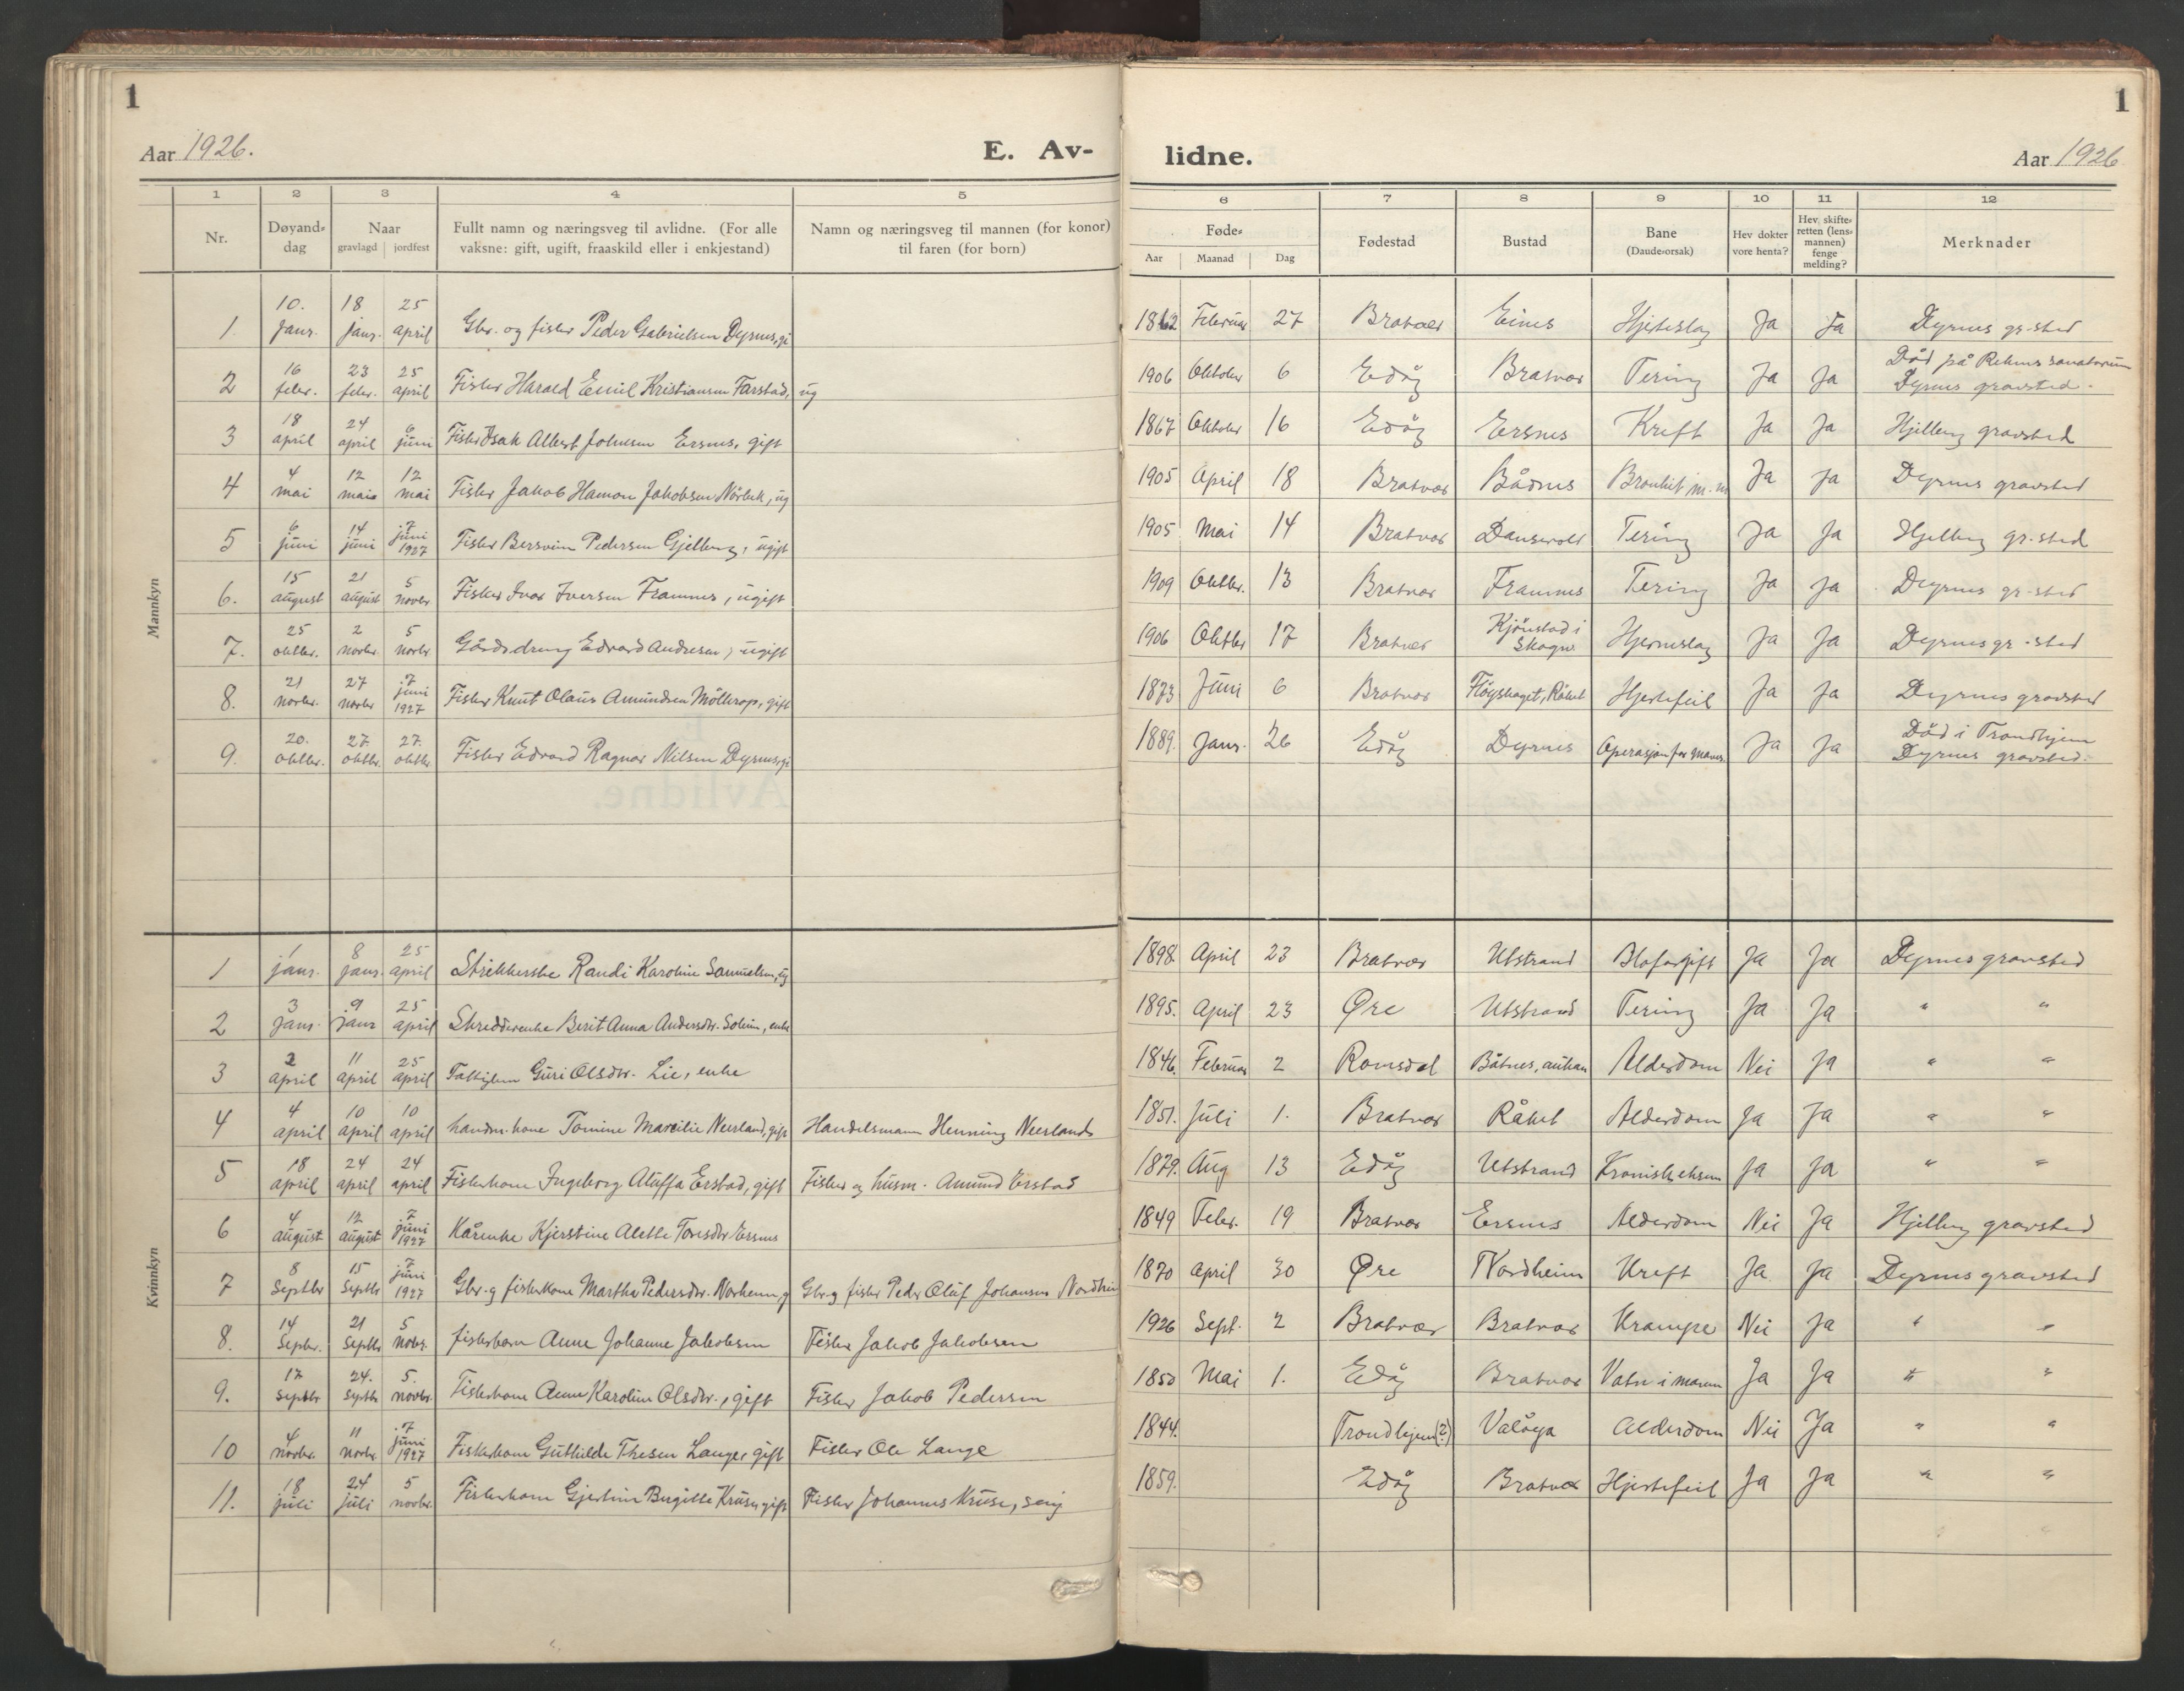 1
Aar 1926.
E. Av-
1 2 3 4 5
Nr. Døyand-dag Naar gravlagd jordfest Fullt namn og næringsveg til avlidne. (For alle vaksne: gift, ugift, fraaskild eller i enkjestand) Namn og næringsveg til mannen (for konor) til faren (for born)
Mannkyn
1. 10. janr. 18 janr. 25 april Gbr. og fisker Peder Gabrielsen Dyrnes, gi
2 16 febr. 23 febr. 25 april Fisker Harald Emil Kristiansen Farstad, ug
3 18 april 24 april 6 juni Fisker Isak Albert Johnsen Ersnes, gift
4 4 mai 12 mai 12 mai Fisker Jakob Hamon Jakobsen, ug
5 6 juni 14 juni 7 juni 1927 Fisker Bersvein Pedersen Gjelberg, ugift
6. 15 august 21 august 5 novbr Fisker Ivar Iversen Framnes, ugift
7. 25 oktbr. 2 novbr. 5 novbr Gårdsdreng Edvard Andresen, ugift
8. 21 novbr. 27 novbr 7 juni 1927 Fisker Knut Olaus Amundsen, gift
9. 20. oktbr. 27. oktbr. 27. oktbr. Fisker Edvard Ragnar Nilsen Dyrnes, gi
Kvinnkyn
1 1 janr. 8 janr. 25 april Strikkerske Randi Karoline Samuelsen, ug
2 3 janr. 9 janr 25 april Skredderenke Berit Anna Andersdtr. Soleim, enke
3 2 april 11 april 25 april Guri Olsdtr. Lie, enke
4 4 april 10 april 10 april handm. kone Tomine Marcilie Neerland, gift Handelsmann Henning Neerland
5 18 april 24 april 24 april Fiskerkone Ingeborg Aluffa Erstad, gift Fisker og husm. Amund Erstad
6 4 august 12 august 7 juni 1927 Kårenke Kjerstine Alette Toresdtr Ersnes
7 8 Septbr 15 Septbr 7 juni 1927 Gbr. og fiskerkone Martha Pedersdtr. Norheim, g Gbr. og fisker Peder Oluf Johansen Nordheim
8. 14 Septbr. 21 Septbr 5 novbr. fiskerbarn Anne Johanne Jakobsen Fisker Jakob Jakobsen
9. 17 septbr 24. septbr 5. novbr. Fiskerkone Anne Karoline Olsdtr., gift Fisker Jakob Pedersen
10 4 novbr. 11 novbr. 7 juni 1927 Fiskerkone Guthilde Thesen Lange, gift Fisker Ole Lange
11. 18 juli 24 juli 5 novbr. Fiskerkone Gjertine Birgitte Kruse, gift Fisker Johannes Kruse,
1
lidne.
Aar 1926
6 7 8 9 10 11 12
Føde- Aar Maanad Dag Fødestad Bustad Bane (Daudsorsak) Hev dokter vore henta? Hev skifteretten (lensmannen) fenge melding? Merknader
1862 Februar 27 Bratvær Eines Hjerteslag Ja Ja Dyrnes gr.sted
1906 Oktober 6 Edøy Bratvær Tering Ja Ja Død på Reknes sanatorium Dyrnes gravsted.
1867 Oktober 16 Edøy Ersnes Kreft Ja Ja Hjelberg gravsted
1905 April 18 Bratvær Båtnes Bronkit m.m Ja Ja Dyrnes gravsted
1905 Mai 14 Bratvær Tering Ja Ja Hjelberg gr.sted
1909 Oktbr. 13 Bratvær Framnes Tering Ja Ja Dyrnes gr.sted
1906 Oktbr 17 Bratvær Kjønstad i Skogn Hjerneslag Ja Ja Dyrnes gr.sted
1873 Juni 6 Bratvær Fløyshaget, Råket Hjertefeil Ja Ja Dyrnes gravsted
1889. Janr. 26 Edøy Dyrnes Operasjon for Ja Ja Død i Trondhjem Dyrnes gravsted.
1898. April 23 Bratvær Utstrand Bloforgift Ja Ja Dyrnes gravsted
1895. April 23 Øre Utstrand Tering Ja Ja " "
1846. Februar 2 Romsdal Båtnes, Alderdom Nei Ja " "
1851. Juli 1. Bratvær Råket Alderdom Ja Ja " "
1879. Aug 13 Edøy Utstrand Kronisk eksem Ja Ja " "
1849 Febr. 19 Bratvær Ersnes Alderdom Nei Ja Hjelberg gravsted
1870 April 30 Øre Nordheim Kreft Ja Ja Dyrnes gravsted
1926 Sept. 2 Bratvær Bratvær Krampe Nei Ja " "
1850 Mai 1. Edøy Bratvær Vatn i maven Ja Ja " "
1844. Trondhjem (?) Valøya Alderdom Nei Ja " "
1859. Edøy Bratvær Hjertefeil Ja Ja " "